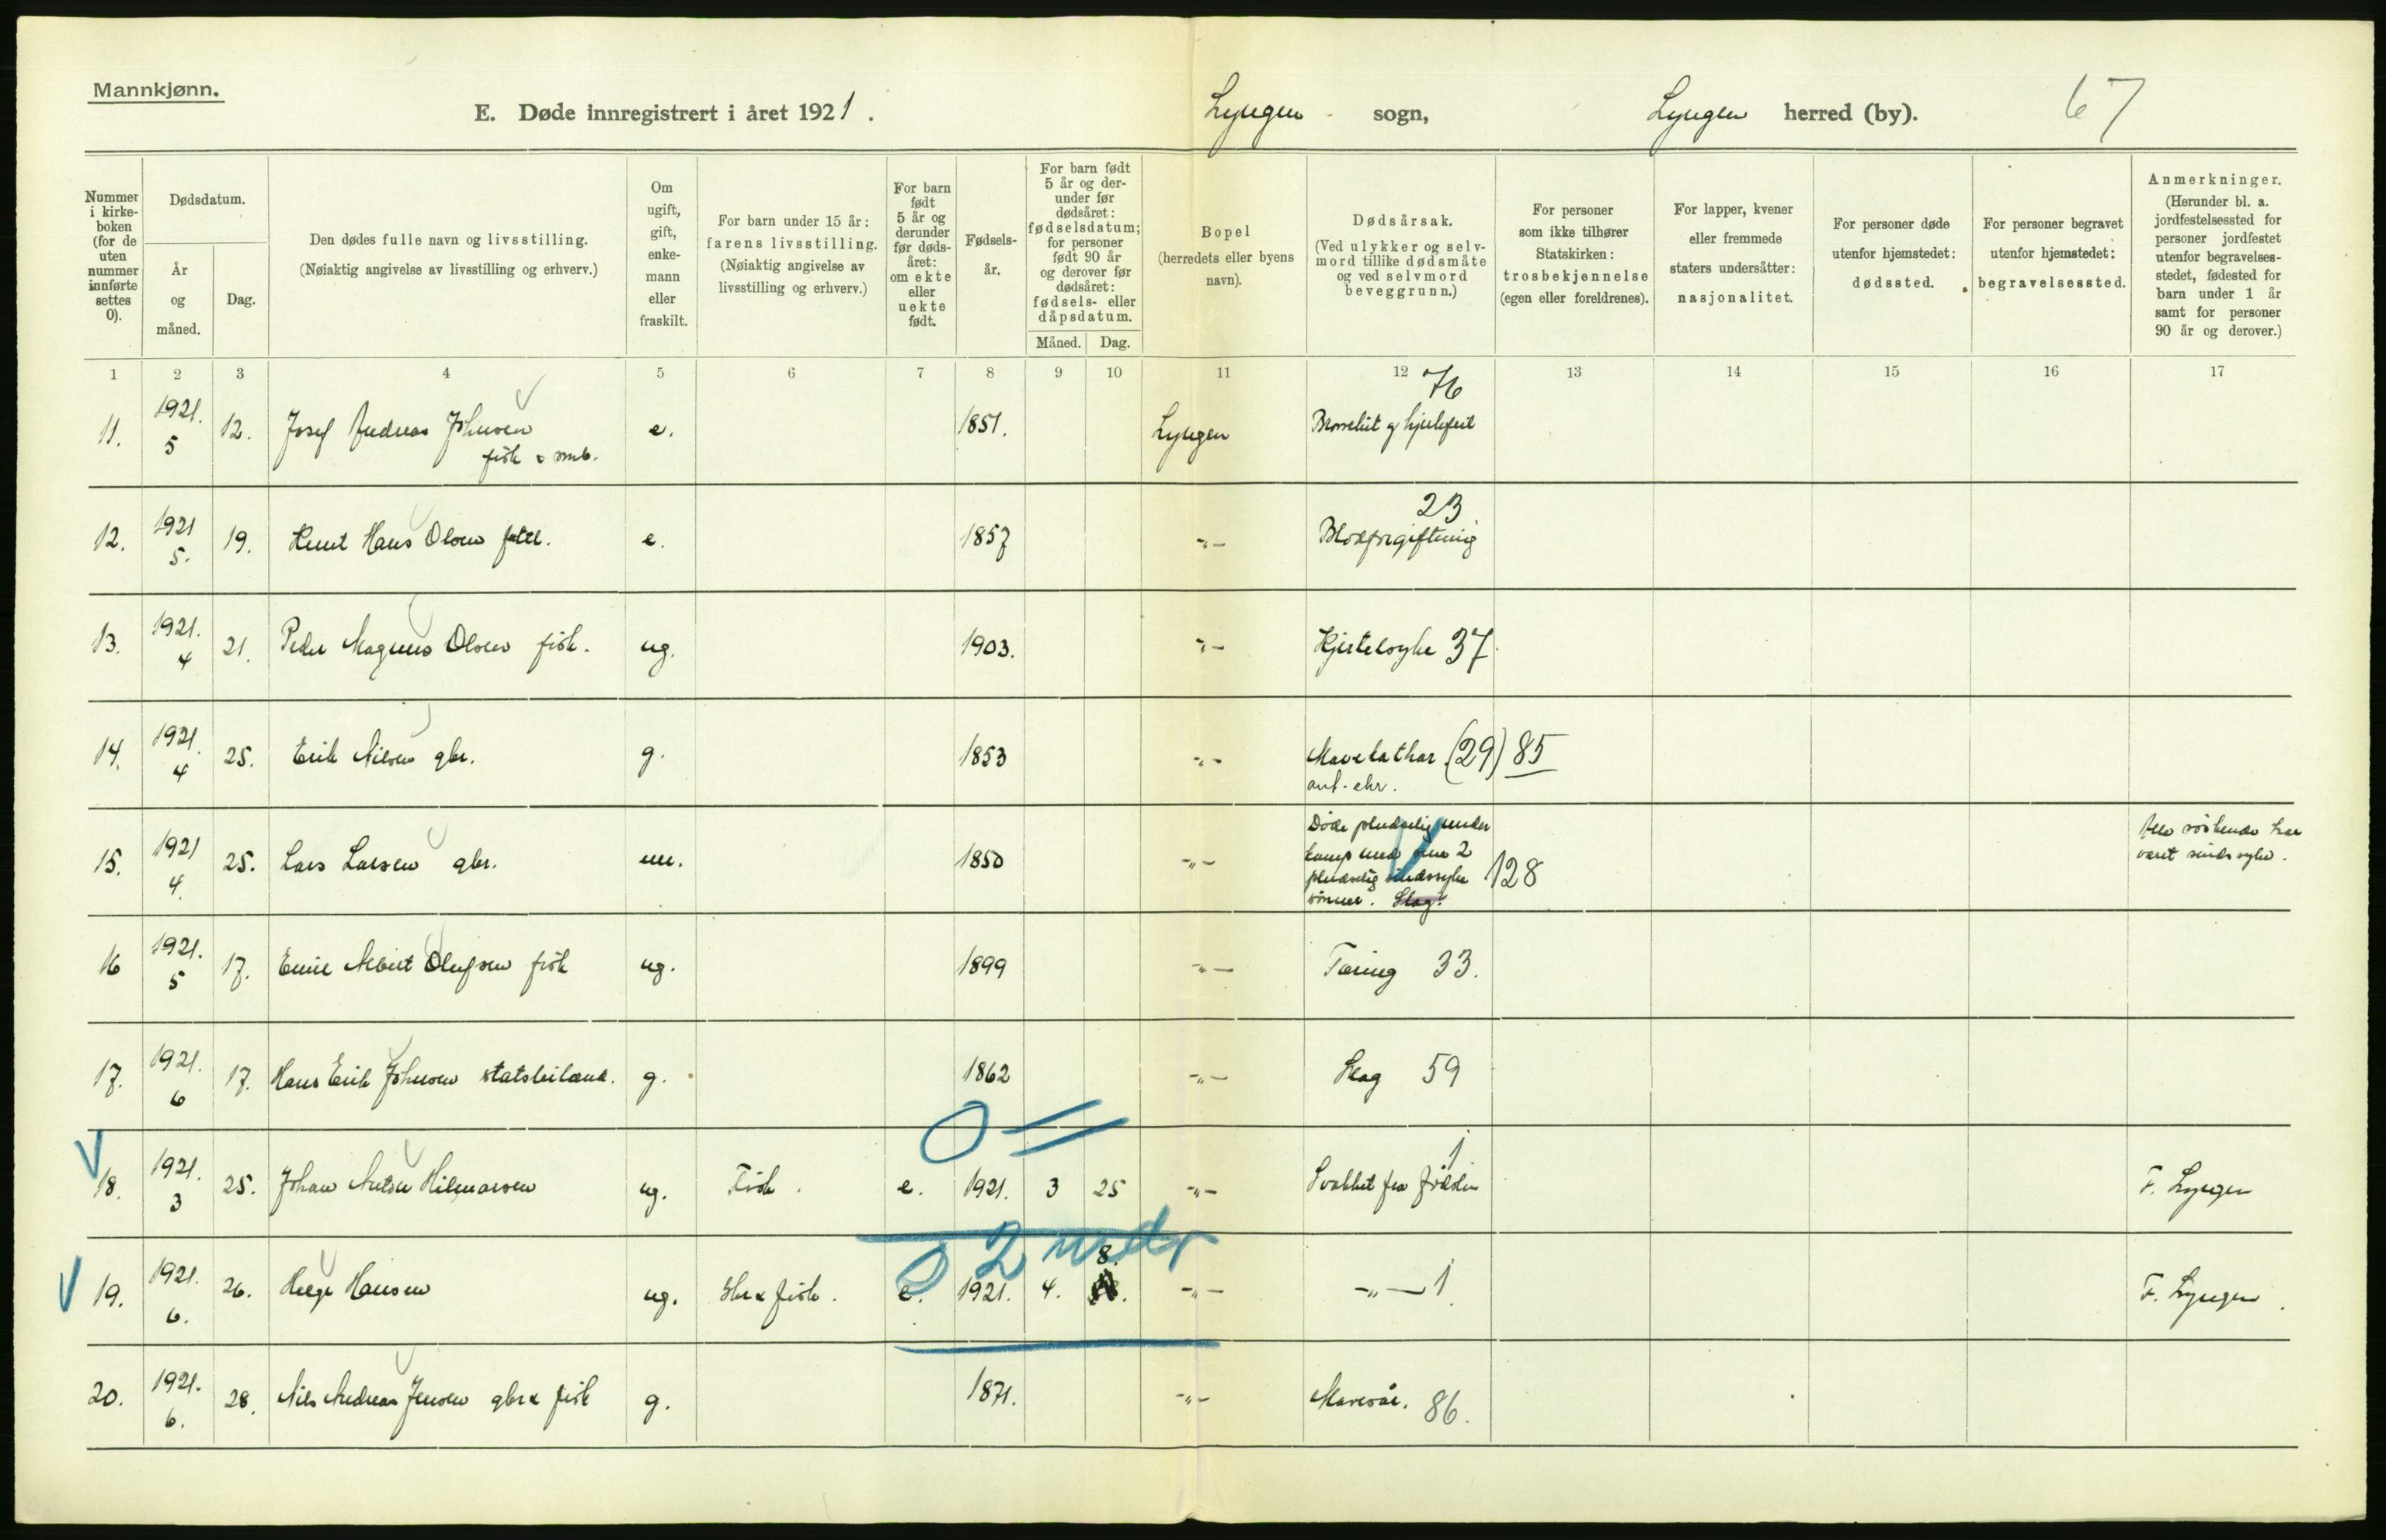 Mannkjønn.
E. Døde innregistrert i året 1921.
Lyngen sogn,
Lyngen herred (by).
67
Nummer
i kirke-
boken
(for de
uten
nummer
innførte
settes
0).
Dødsdatum.
År
og
måned.
Dag.
Den dødes fulle navn og livsstilling.
(Nøiaktig angivelse av livsstilling og erhverv.)
Om
ugift,
gift,
enke-
mann
eller
fraskilt.
For barn under 15 år:
farens livsstilling.
(Nøiaktig angivelse av
livsstilling og erhverv.)
For barn
født
5 år og
derunder
før døds-
året:
om ekte
eller
uekte
født.
Fødsels-
år.
For barn født
5 år og der-
under før
dødsåret:
fødselsdatum;
for personer
født 90 år
og derover før
dødsåret:
fødsels- eller
dåpsdatum.
Måned. Dag.
Bopel
(herredets eller byens
navn).
Dødsårsak.
(Ved ulykker og selv-
mord tillike dødsmåte
og ved selvmord
beveggrunn.)
For personer
som ikke tilhører
Statskirken:
trosbekjennelse
(egen eller foreldrenes).
For lapper, kvener
eller fremmede
staters undersåtter:
nasjonalitet.
For personer døde
utenfor hjemstedet:
dødssted.
For personer begravet
utenfor hjemstedet:
begravelsessted.
Anmerkninger.
(Herunder bl. a.
jordfestelsessted for
personer jordfestet
utenfor begravelses-
stedet, fødested for
barn under 1 år
samt for personer
90 år og derover.)
1 2 3 4 5 6 7 8 9 10 11 12 13 14 15 16 17
76
11. 1921. 5 12. Josef Andreas Johnsen e. 1851. Lyngen
fisk & smb.
23
12. 1921 5. 19. Knut Hans Olsen e. 1857 -"- Blodforgiftning
13. 1921. 4 21. Peder Magnus Olsen fisk. ug. 1903. -"- Hjertesyke 37
14. 1921. 4 25. Erik Nilsen gbr. g. 1853 -"- Mavekathar (29) 85
ant. chr.
15. 1921 4. 25. Lars Larsen gbr. em. 1850 -"- Døde pludselig under
kamp med sine 2
pludselig sindssyke 128
sønner. Slag.
Alle søskende har
været sindssyke.
16 1921. 5 17. Emil Albert Olufsen fisk ug. 1899 -"- Tæring 33.
17. 1921. 6 17. Hans Erik Johnsen g. 1862 -"- Slag 59
0 =
1
18. 1921. 3 25. Johan Hilmarsen ug. Fisk. e. 1921. 3 25 -"- Svakhet fra fødslen F. Lyngen
2 mdr
8.
19. 1921. 6. 26. Helge Hansen ug. fisk. e. 1921. 4. -"- -"- 1 F. Lyngen.
20. 1921. 6. 28. Nils Andreas Jensen gbr & fisk g. 1871. -"- Mavesår. 86.